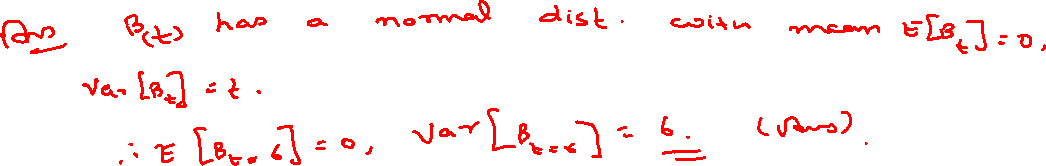 Ans B(t) has a normal dist. with mean E[B_t]=0,
Var[B_t] = t.
∴ E[B_{t=6}]=0, Var[B_{t=6}] = 6. (Ans)